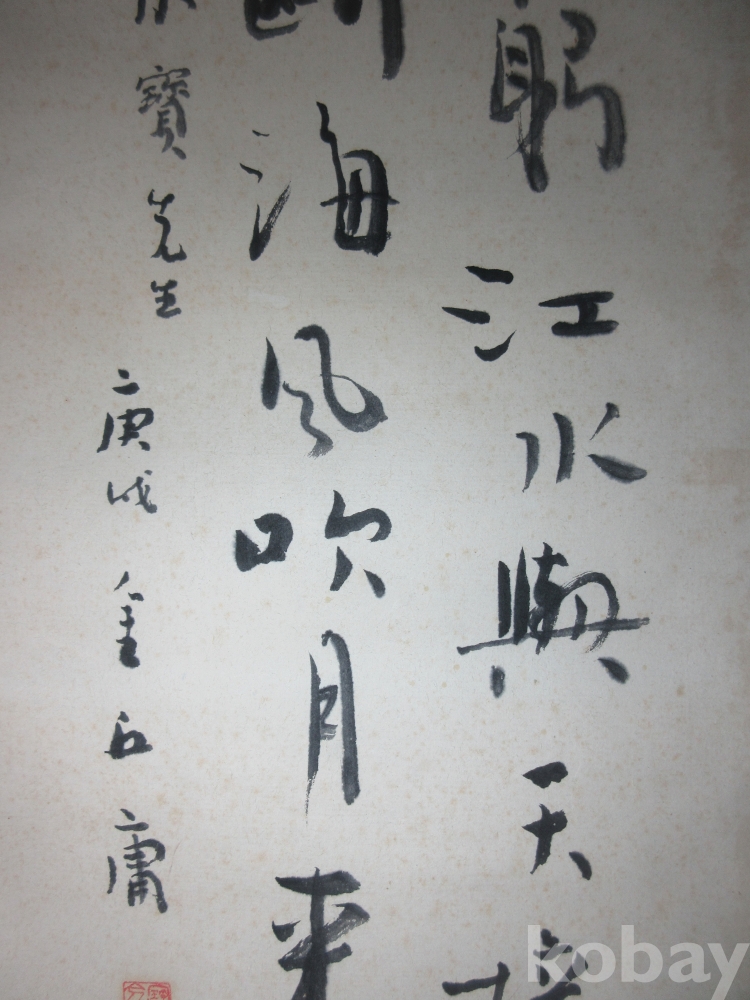 江水與天接
海風吹月來
寶先生
庚戌 金 庸
kobay